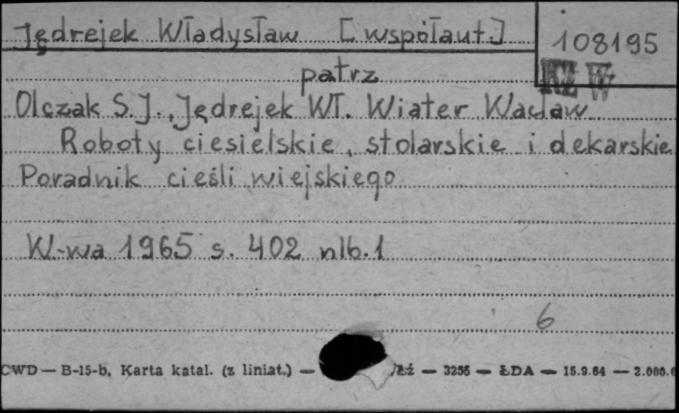 Jędrejek Władysław [współaut.]
108195
KZ W
patrz
Olczak S.J., Jędrejek Wł. Wiater Wacław
Roboty ciesielskie, stolarskie i dekarskie
Poradnik cieśli wiejskiego
W-wa 1965 s. 402 nlb. 1
6
CWD — B-15-b, Karta katal. (z liniat.) — /Łź — 3255 — ŁDA — 15.9.64 — 2.000.0